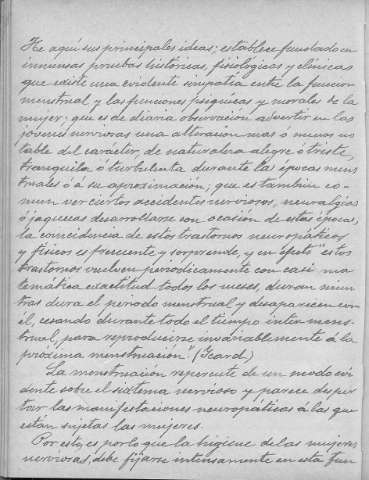 He aquí sus principales ideas; establece fundado en
inmensas pruebas históricas, fisiológicas y clínicas
que existe una evidente simpatía entre la función
menstrual y las funciones psíquicas y morales de la
mujer; que es de diaria observación advertir en las
jóvenes nerviosas una alteración mas ó menos no
table del carácter, de naturaleza alegre ó triste,
tranquila ó turbulenta durante las épocas mens
truales ó á su aproximación; que es tambien co-
mun ver ciertos accidentes nerviosos, neuralgias
ó jaquecas desarrollarse con ocasión de estas épocas,
la coincidencia de estos trastornos neuropáticos
y físicos es frecuente y sorprende, y en efecto "estos
trastornos vuelven periódicamente con casi ma
temática exactitud todos los meses, duran mien
tras dura el periodo menstrual y desaparecen con
él, cesando durante todo el tiempo inter-mens-
trual, para reproducirse invariablemente á la
próxima menstruación" (Icard)
La menstruación repercute de un modo evi
dente sobre el sistema nervioso y parece desper
tar las manifestaciones neuropáticas á las que
están sujetas las mujeres.
Por esto, es por lo que la higiene de las mujeres
nerviosas, debe fijarse intensamente en esta fun